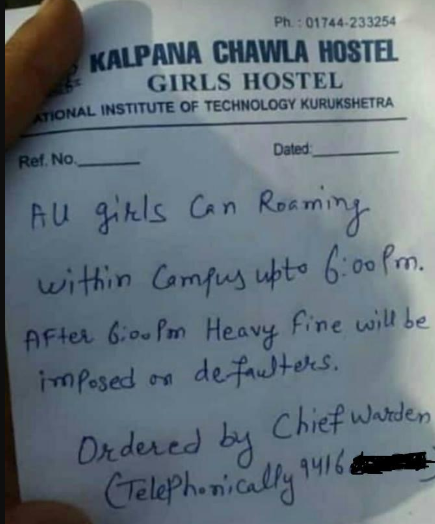 Ph. : 01744-233254
KALPANA CHAWLA HOSTEL
GIRLS HOSTEL
ATIONAL INSTITUTE OF TECHNOLOGY KURUKSHETRA
Ref. No.______ Dated:______
All girls Can Roaming
within Campus upto 6:00 Pm.
After 6:00 Pm Heavy Fine will be
imposed on defaulters.
Ordered by Chief Warden
(Telephonically 9416